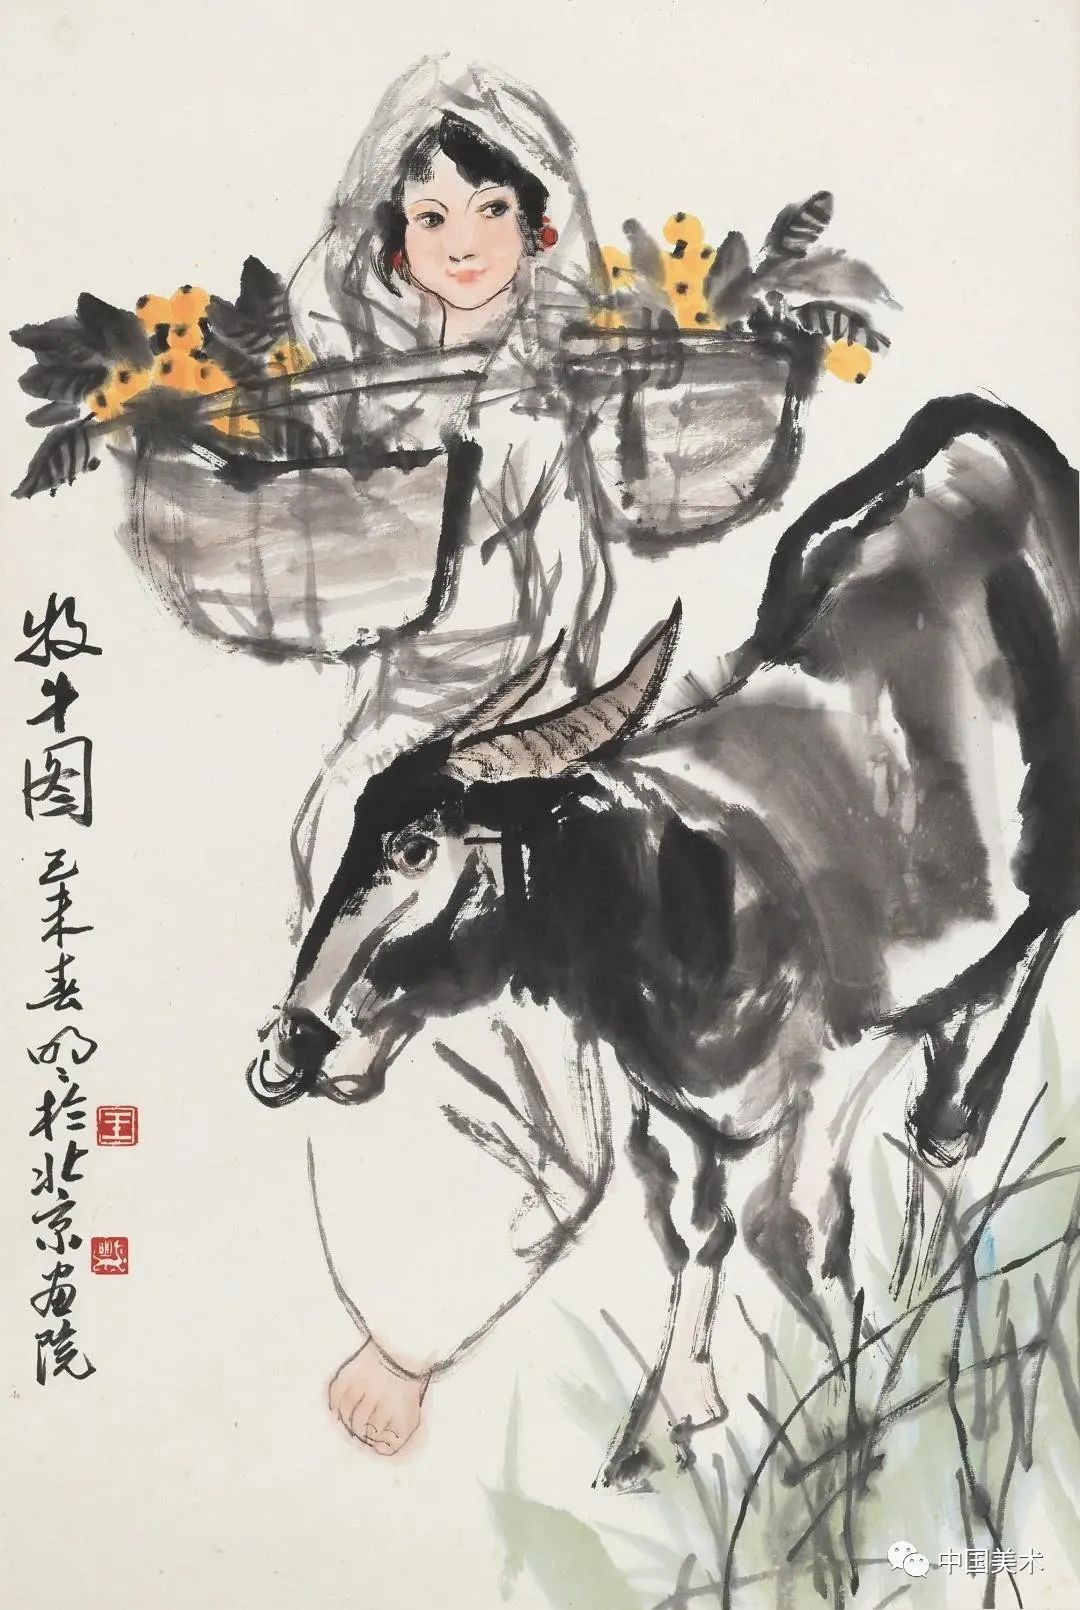 牧牛图 己未春明〻於北京画院
王
中国美术